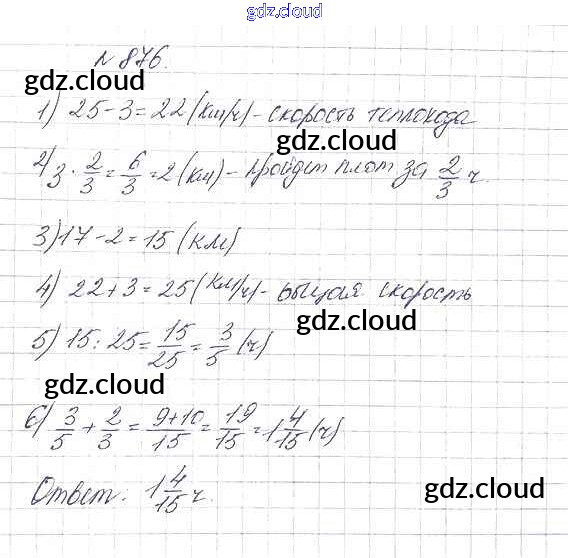 gdz.cloud
№ 876.
gdz.cloud gdz.cloud
1) 25 - 3 = 22 (км/ч) - скорость теплохода
gdz.cloud
2) 3 · 2/3 = 6/3 = 2 (км) - пройдет плот за 2/3 ч.
3) 17 - 2 = 15 (км)
4) 22 + 3 = 25 (км/ч) - общая скорость
gdz.cloud
5) 15 : 25 = 15/25 = 3/5 (ч)
gdz.cloud
6) 3/5 + 2/3 = 9+10/15 = 19/15 = 1 4/15 (ч)
Ответ: 1 4/15 ч.
gdz.cloud